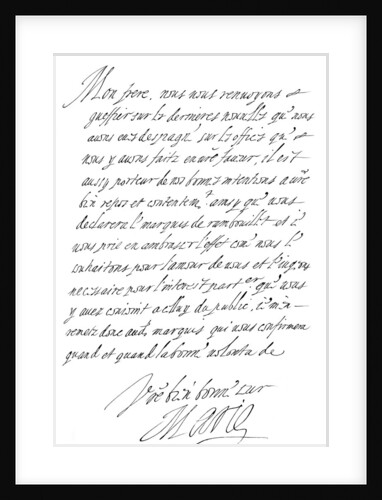 Mon frere, nous nous renuoyons
gueffier sur les dernieres nouuelles qu'nous
auons eues despagn' sur les offices qu'
nous y auons faitz en vre faueur, il est
aussy porteur de nos bonnes intentions a vre
bi'n repos et contentem't ainsy qu' vous
declarera l' marquis de rambouillet et i'
vous prie en ambraser l'effet com' nous l'
souhaitons pour l'amour de vous et l'
necessaire pour l'interest part'er qu' vous
y auez conioint a celluy du public, i' m'en
remetz donc aud't marquis qui vous confirmera
quand et quand la bonn' volonta de
Vre bi'n bonn' sur
Marie